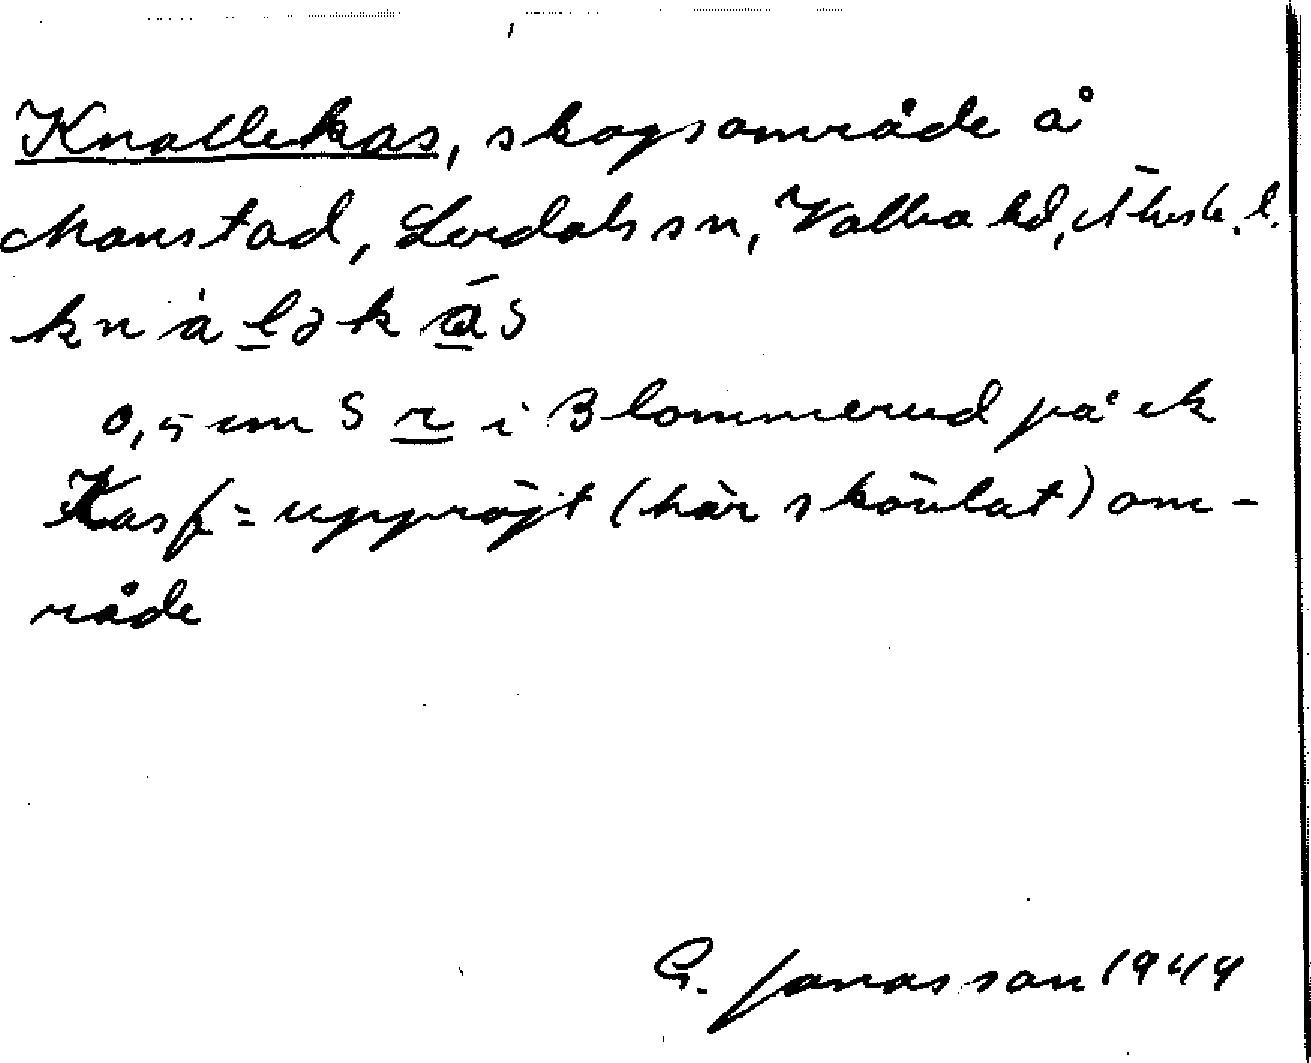 Knallekas, skogsområde å
Manstad, Lerdals sn, Valbo hd, Älvsb. l.
knàləkás
0,5 cm S r i Blommerud på ek
Kas f = uppröjt (här skövlat) om-
råde
G. Jonasson 1944